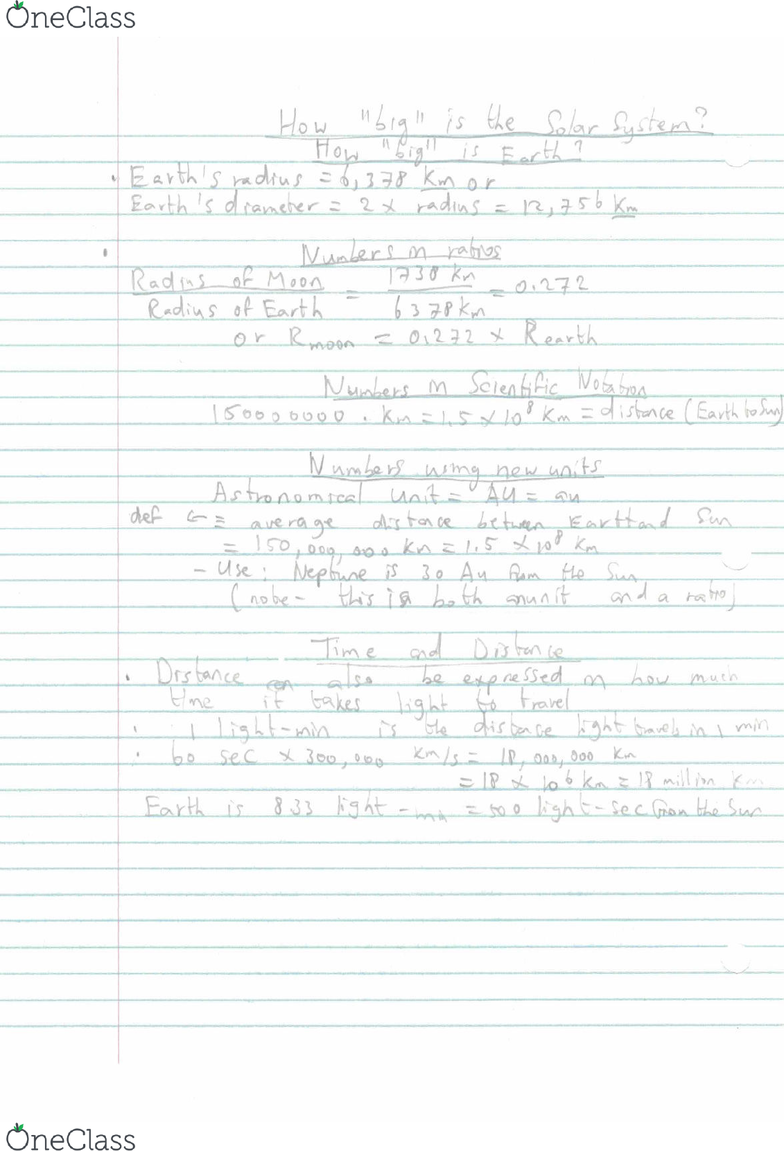 OneClass
How "big" is the Solar System?
How "big" is Earth?
• Earth's radius = 6,378 Km or
Earth's diameter = 2 x radius = 12,756 Km
• Numbers in ratios
Radius of Moon / Radius of Earth = 1738 km / 6378 km = 0.272
or R moon = 0.272 x R earth
Numbers in Scientific Notation
150000000 . Km = 1.5 x 10⁸ Km = distance (Earth to Sun)
Numbers using new units
Astronomical unit = AU = au
def ≡ average distance between Earth and Sun
= 150,000,000 km = 1.5 x 10⁸ Km
- Use: Neptune is 30 Au from the Sun
(note - this is both an unit and a ratio)
Time and Distance
• Distance can also be expressed in how much
time it takes light to travel
• 1 light-min is the distance light travels in 1 min
• 60 sec x 300,000 km/s = 18,000,000 km
= 18 x 10⁶ km = 18 million km
Earth is 8.33 light - min = 500 light-sec from the Sun
OneClass